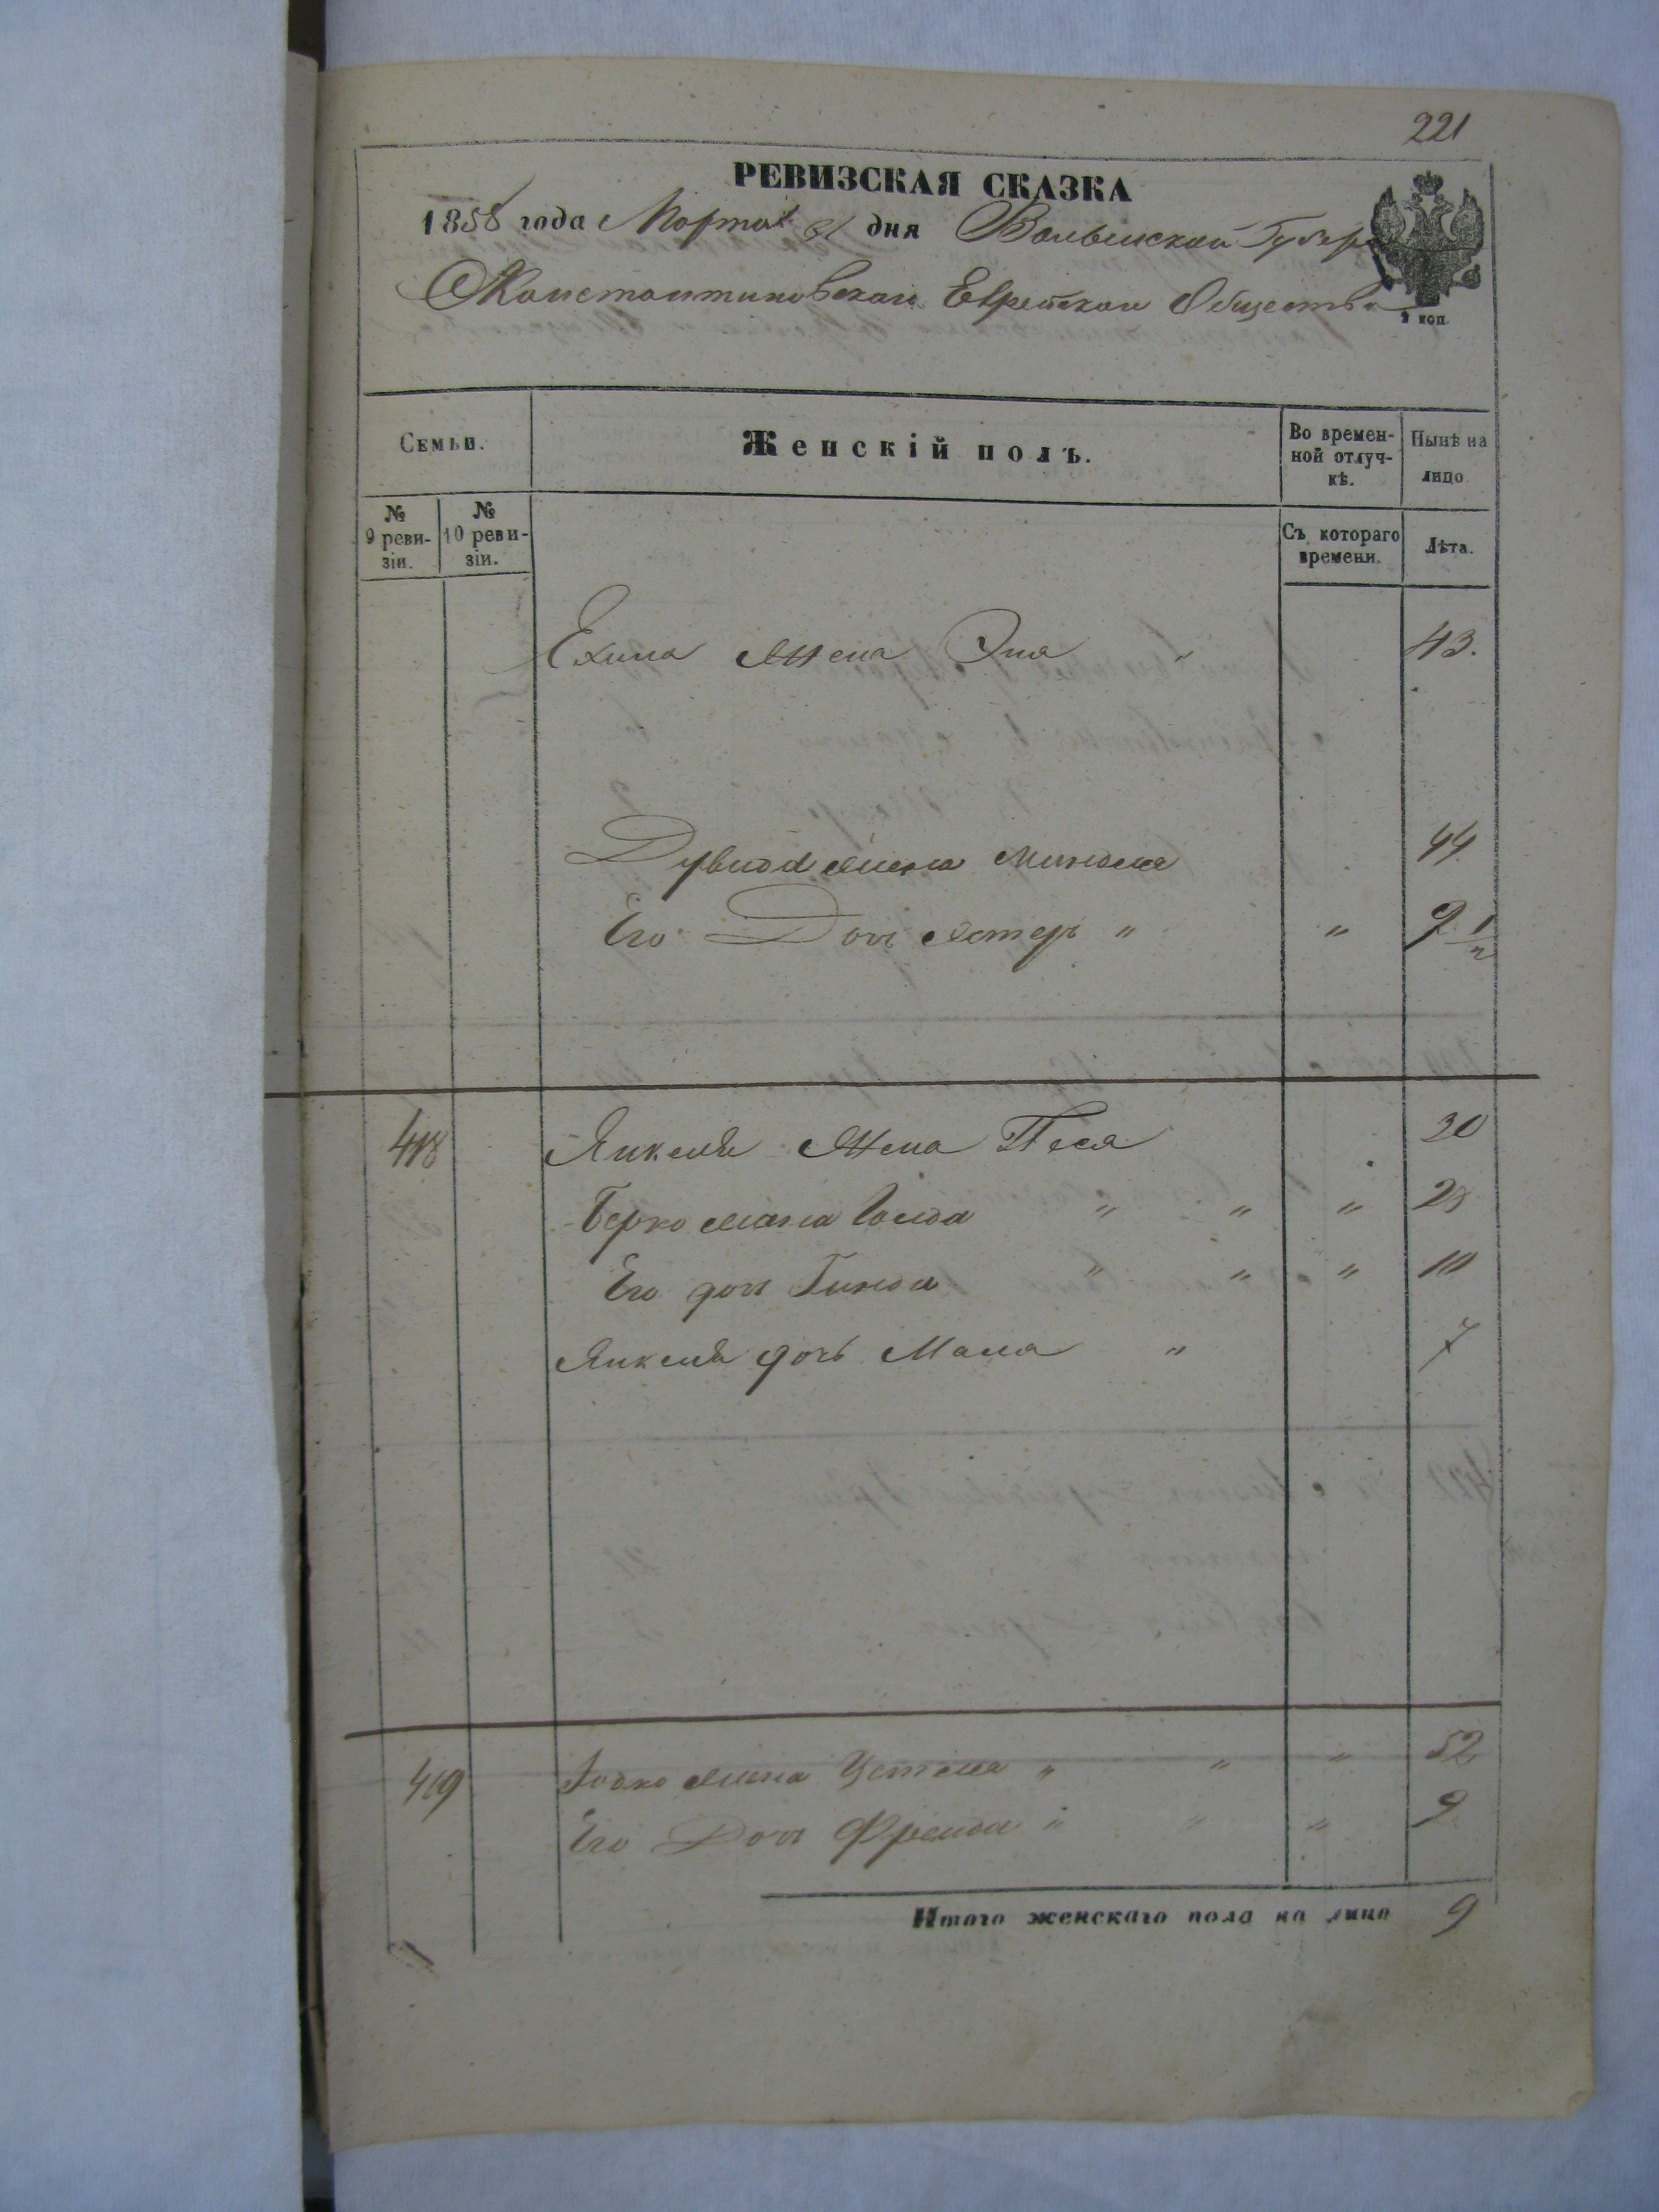 221
РЕВИЗСКАЯ СКАЗКА
1858 года Марта 31 дня Волынской Губер
Константиновскаго Еврейскаго Общества
2 коп.
Семьи.
Женскій полъ.
Во времен-
ной отлуч-
кѣ.
Нынѣ на
лицо.
№
9 реви-
зіи.
№
10 реви-
зіи.
Съ котораго
времени.
Лѣта.
Ехила Жена Эта " 43.
жена 44
Его Дочь Эстеръ " " 9 1/2
418 Янкеля Жена Песя 30
Берко жена Голда " " " 28
Его дочь Гинда " " " 10
Янкеля дочь Мала " 7
419 жена " " " 52
Его Дочь Фрейда " " " 9
Итого женскаго пола на лицо 9